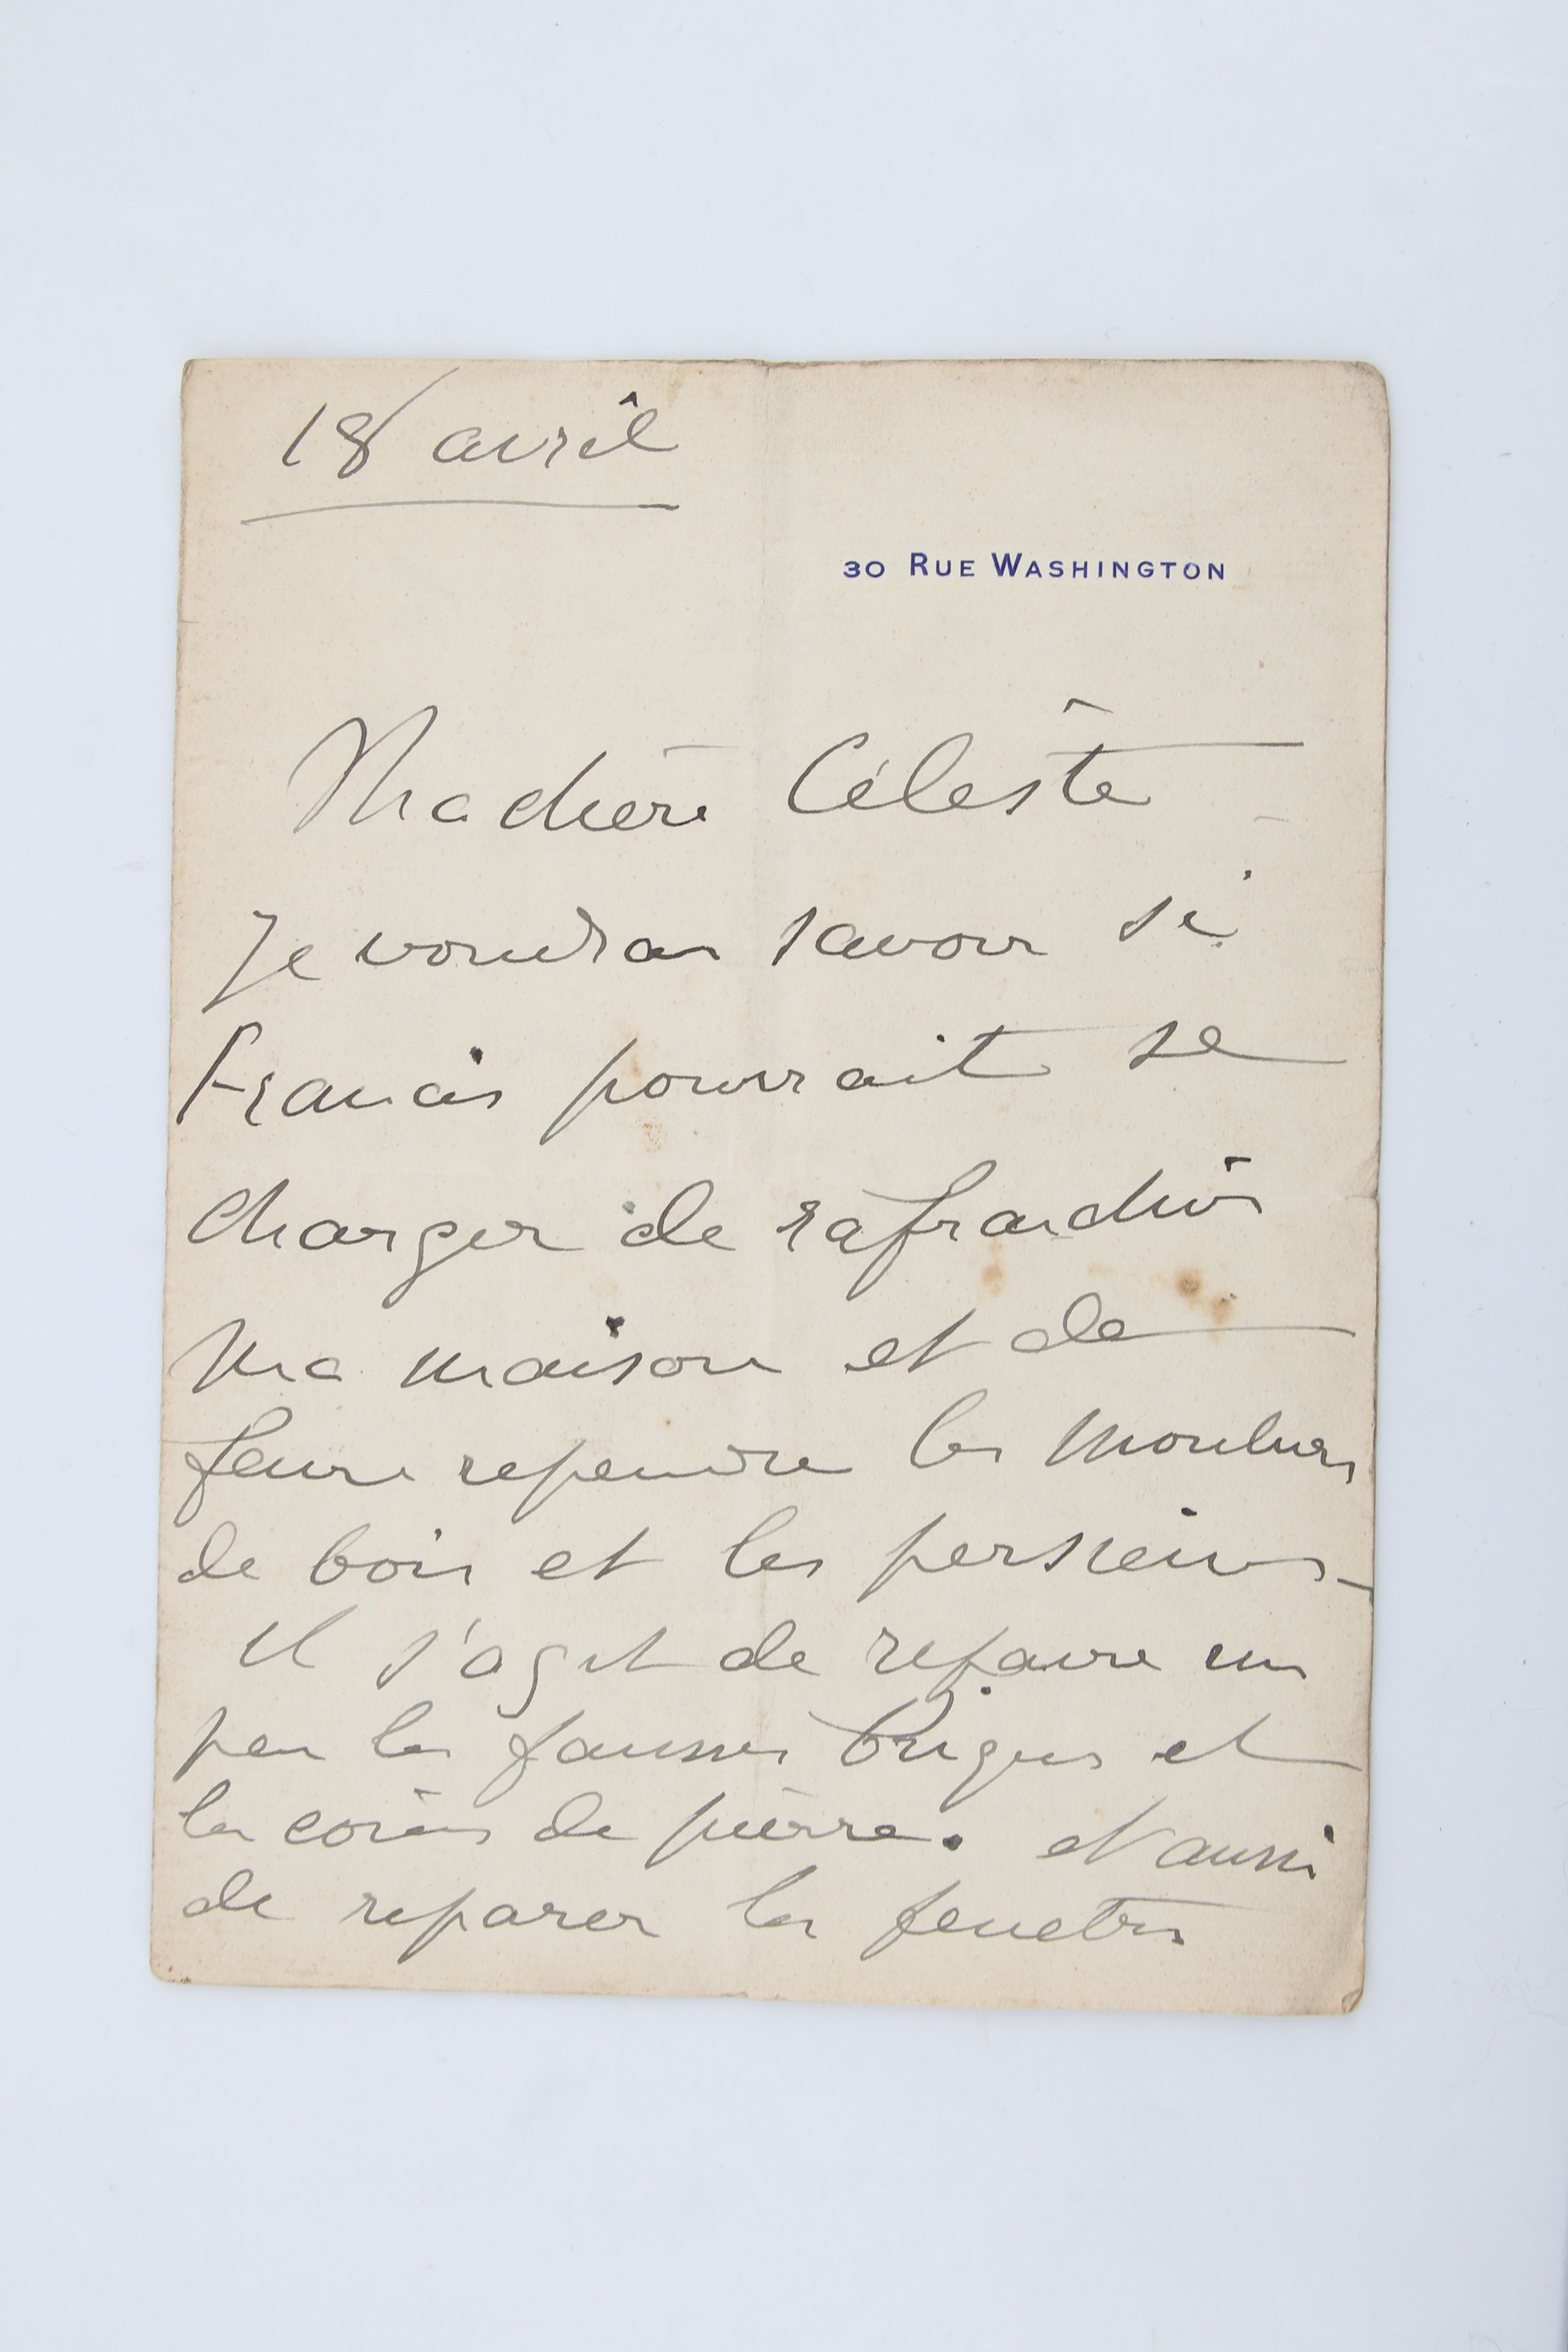 18 avril
30 RUE WASHINGTON
Ma chère Céleste
Je voudrais savoir si
Francis pourrait se
charger de rafraichir
ma maison et de
faire repeindre les moulures
de bois et les persiennes -
Il s'agit de refaire un
peu les fausses briques et
les coins de pierre. et aussi
de reparer les fenetres